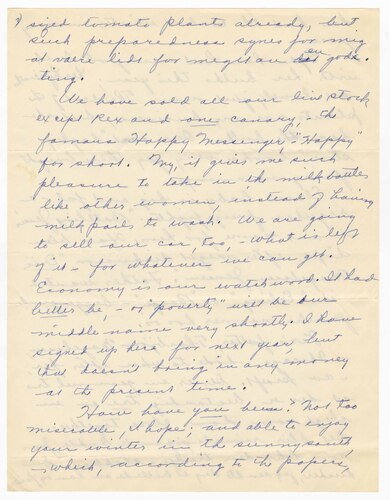 sized tomato plants already, but
such preparedness
at
ting.
We have sold all our live stock
except Rex and one canary, - the
famous Happy Messenger, - "Happy"
for short. My, it gives me such
pleasure to take in the milk bottles
like other women, instead of having
milk pails to wash. We are going
to sell our car, too, - what is left
of it - for whatever we can get.
Economy is our watchword. It had
better be, - or "poverty" will be our
middle name very shortly. I have
signed up here for next year, but
that doesn't bring in any money
at the present time.
How have you been? Not too
miserable, I hope: and able to enjoy
your winter in the sunny south,
- which according to the papers,